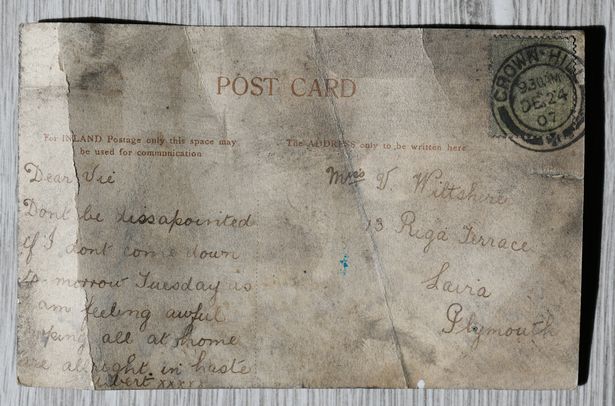 POST CARD
CROWN-HILL
9.30 PM
DE 24
07
For INLAND Postage only this space may
be used for communication
The ADDRESS only to be written here
Dear Vie
Dont be dissapointed
if I dont come down
to-morrow Tuesday as
I am feeling awful
hoping all at home
are alright in haste
xxxxx
Mrs V Wiltshire
13 Riga Terrace
Laira
Plymouth